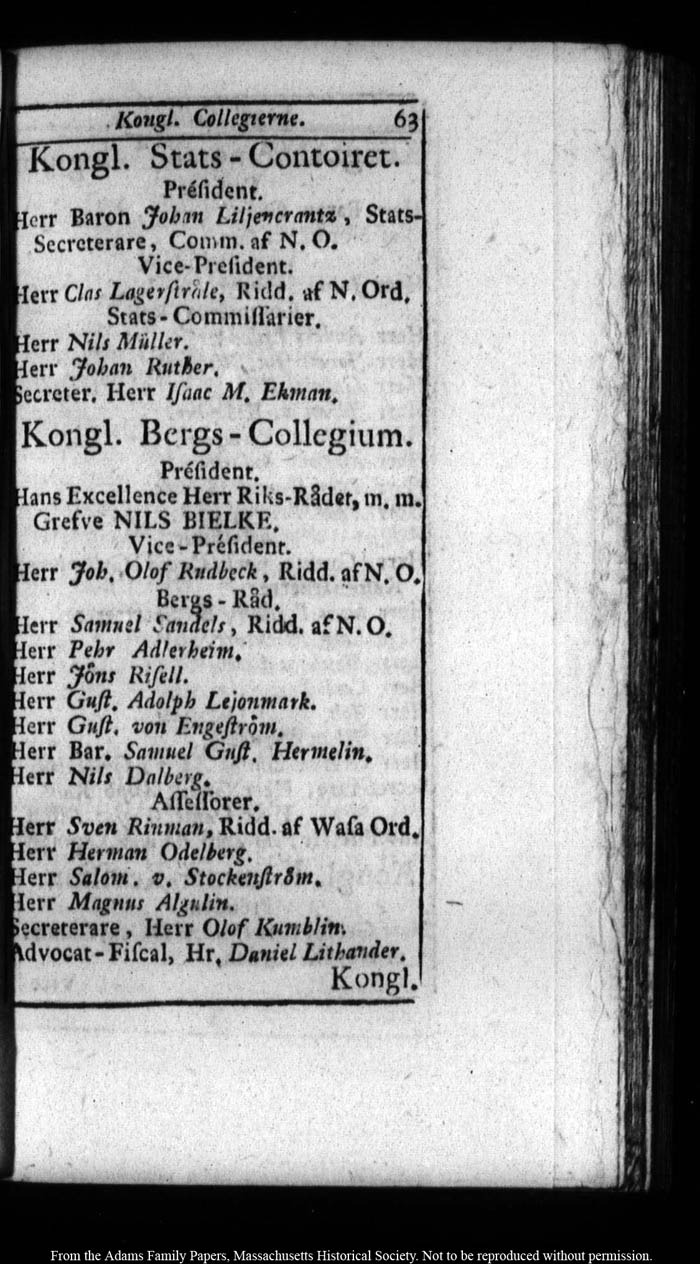 Kongl. Collegierne. 63
Kongl. Stats-Contoiret.
Préſident.
Herr Baron Johan Liljencrantz, Stats-
Secreterare, Comm. af N. O.
Vice-Preſident.
Herr Clas Lagerſtråle, Ridd. af N. Ord.
Stats-Commiſſarier.
Herr Nils Müller.
Herr Johan Ruther.
Secreter. Herr Iſaac M. Ekman.
Kongl. Bergs-Collegium.
Préſident.
Hans Excellence Herr Riks-Rådet, m. m.
Grefve NILS BIELKE.
Vice-Préſident.
Herr Joh. Olof Rudbeck, Ridd. af N. O.
Bergs-Råd.
Herr Samuel Sandels, Ridd. af N. O.
Herr Pehr Adlerheim.
Herr Jöns Riſell.
Herr Guſt. Adolph Lejonmark.
Herr Guſt. von Engeſtröm.
Herr Bar. Samuel Guſt. Hermelin.
Herr Nils Dalberg.
Aſſeſſorer.
Herr Sven Rinman, Ridd. af Waſa Ord.
Herr Herman Odelberg.
Herr Salom. v. Stockenſtröm.
Herr Magnus Algulin.
Secreterare, Herr Olof Kumblin.
Advocat-Fiſcal, Hr. Daniel Lithander.
Kongl.
From the Adams Family Papers, Massachusetts Historical Society. Not to be reproduced without permission.